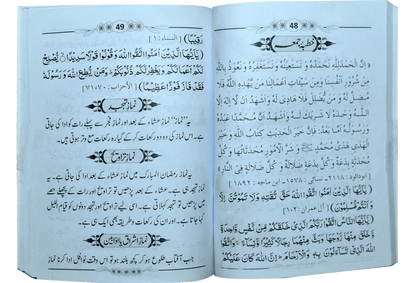 48
خطبہ جمعہ
إِنَّ الْحَمْدَ لِلّٰهِ نَحْمَدُهُ وَنَسْتَعِينُهُ وَنَسْتَغْفِرُهُ وَنَعُوذُ بِاللّٰهِ
مِنْ شُرُورِ أَنْفُسِنَا وَمِنْ سَيِّئَاتِ أَعْمَالِنَا مَنْ يَهْدِهِ اللّٰهُ فَلَا
مُضِلَّ لَهُ وَمَنْ يُضْلِلْ فَلَا هَادِيَ لَهُ وَأَشْهَدُ أَنْ لَا إِلٰهَ إِلَّا
اللّٰهُ وَحْدَهُ لَا شَرِيكَ لَهُ وَأَشْهَدُ أَنَّ مُحَمَّدًا عَبْدُهُ
وَرَسُولُهُ أَمَّا بَعْدُ: فَإِنَّ خَيْرَ الْحَدِيثِ كِتَابُ اللّٰهِ وَخَيْرَ
الْهَدْيِ هَدْيُ مُحَمَّدٍ ﷺ وَشَرَّ الْأُمُورِ مُحْدَثَاتُهَا وَكُلَّ
مُحْدَثَةٍ بِدْعَةٌ وَكُلَّ بِدْعَةٍ ضَلَالَةٌ وَكُلَّ ضَلَالَةٍ فِي النَّارِ
(ابوداود: ٢١١٨، نسائی: ١٥٧٨، ابن ماجہ: ١٨٩٢)
﴿يَٰٓأَيُّهَا الَّذِينَ آمَنُوا اتَّقُوا اللّٰهَ حَقَّ تُقَاتِهِ وَلَا تَمُوتُنَّ إِلَّا
وَأَنْتُمْ مُسْلِمُونَ﴾ (آل عمران: ١٠٢)
﴿يَٰٓأَيُّهَا النَّاسُ اتَّقُوا رَبَّكُمُ الَّذِي خَلَقَكُمْ مِنْ نَفْسٍ وَاحِدَةٍ
وَخَلَقَ مِنْهَا زَوْجَهَا وَبَثَّ مِنْهُمَا رِجَالًا كَثِيرًا وَنِسَاءً ۚ وَاتَّقُوا
اللّٰهَ الَّذِي تَسَاءَلُونَ بِهِ وَالْأَرْحَامَ ۚ إِنَّ اللّٰهَ كَانَ عَلَيْكُمْ
49
رَقِيبًا﴾ (النساء: ١)
﴿يَٰٓأَيُّهَا الَّذِينَ آمَنُوا اتَّقُوا اللّٰهَ وَقُولُوا قَوْلًا سَدِيدًا ۝ يُصْلِحْ
لَكُمْ أَعْمَالَكُمْ وَيَغْفِرْ لَكُمْ ذُنُوبَكُمْ ۗ وَمَنْ يُطِعِ اللّٰهَ وَرَسُولَهُ
فَقَدْ فَازَ فَوْزًا عَظِيمًا﴾ (الأحزاب: ٧٠،٧١)
نماز تہجد
یہ نماز نماز عشاء کے بعد اور نماز فجر سے پہلے رات کو ادا کی جاتی
ہے۔ اس نماز کی دو دو رکعات کر کے گیارہ رکعات مع وتر ہوتی ہیں۔
نماز تراویح
یہ نماز رمضان المبارک میں نماز عشاء کے بعد ادا کی جاتی ہے۔ یہی
نماز تہجد بھی ہے۔ عشاء کے بعد پڑھیں تو تراویح اور رات کے پچھلے حصے
میں پڑھیں تو تہجد کہلاتی ہے۔ اسی لیے تراویح اور تہجد دونوں کو قیام اللیل
کہا جاتا ہے۔ اور ان کی رکعات و طریقہ بھی ایک ہی ہے۔
نماز اشراق یا اوابین
جب آفتاب طلوع ہو کر کچھ بلند ہو تو اس وقت نوافل ادا کرنا نماز